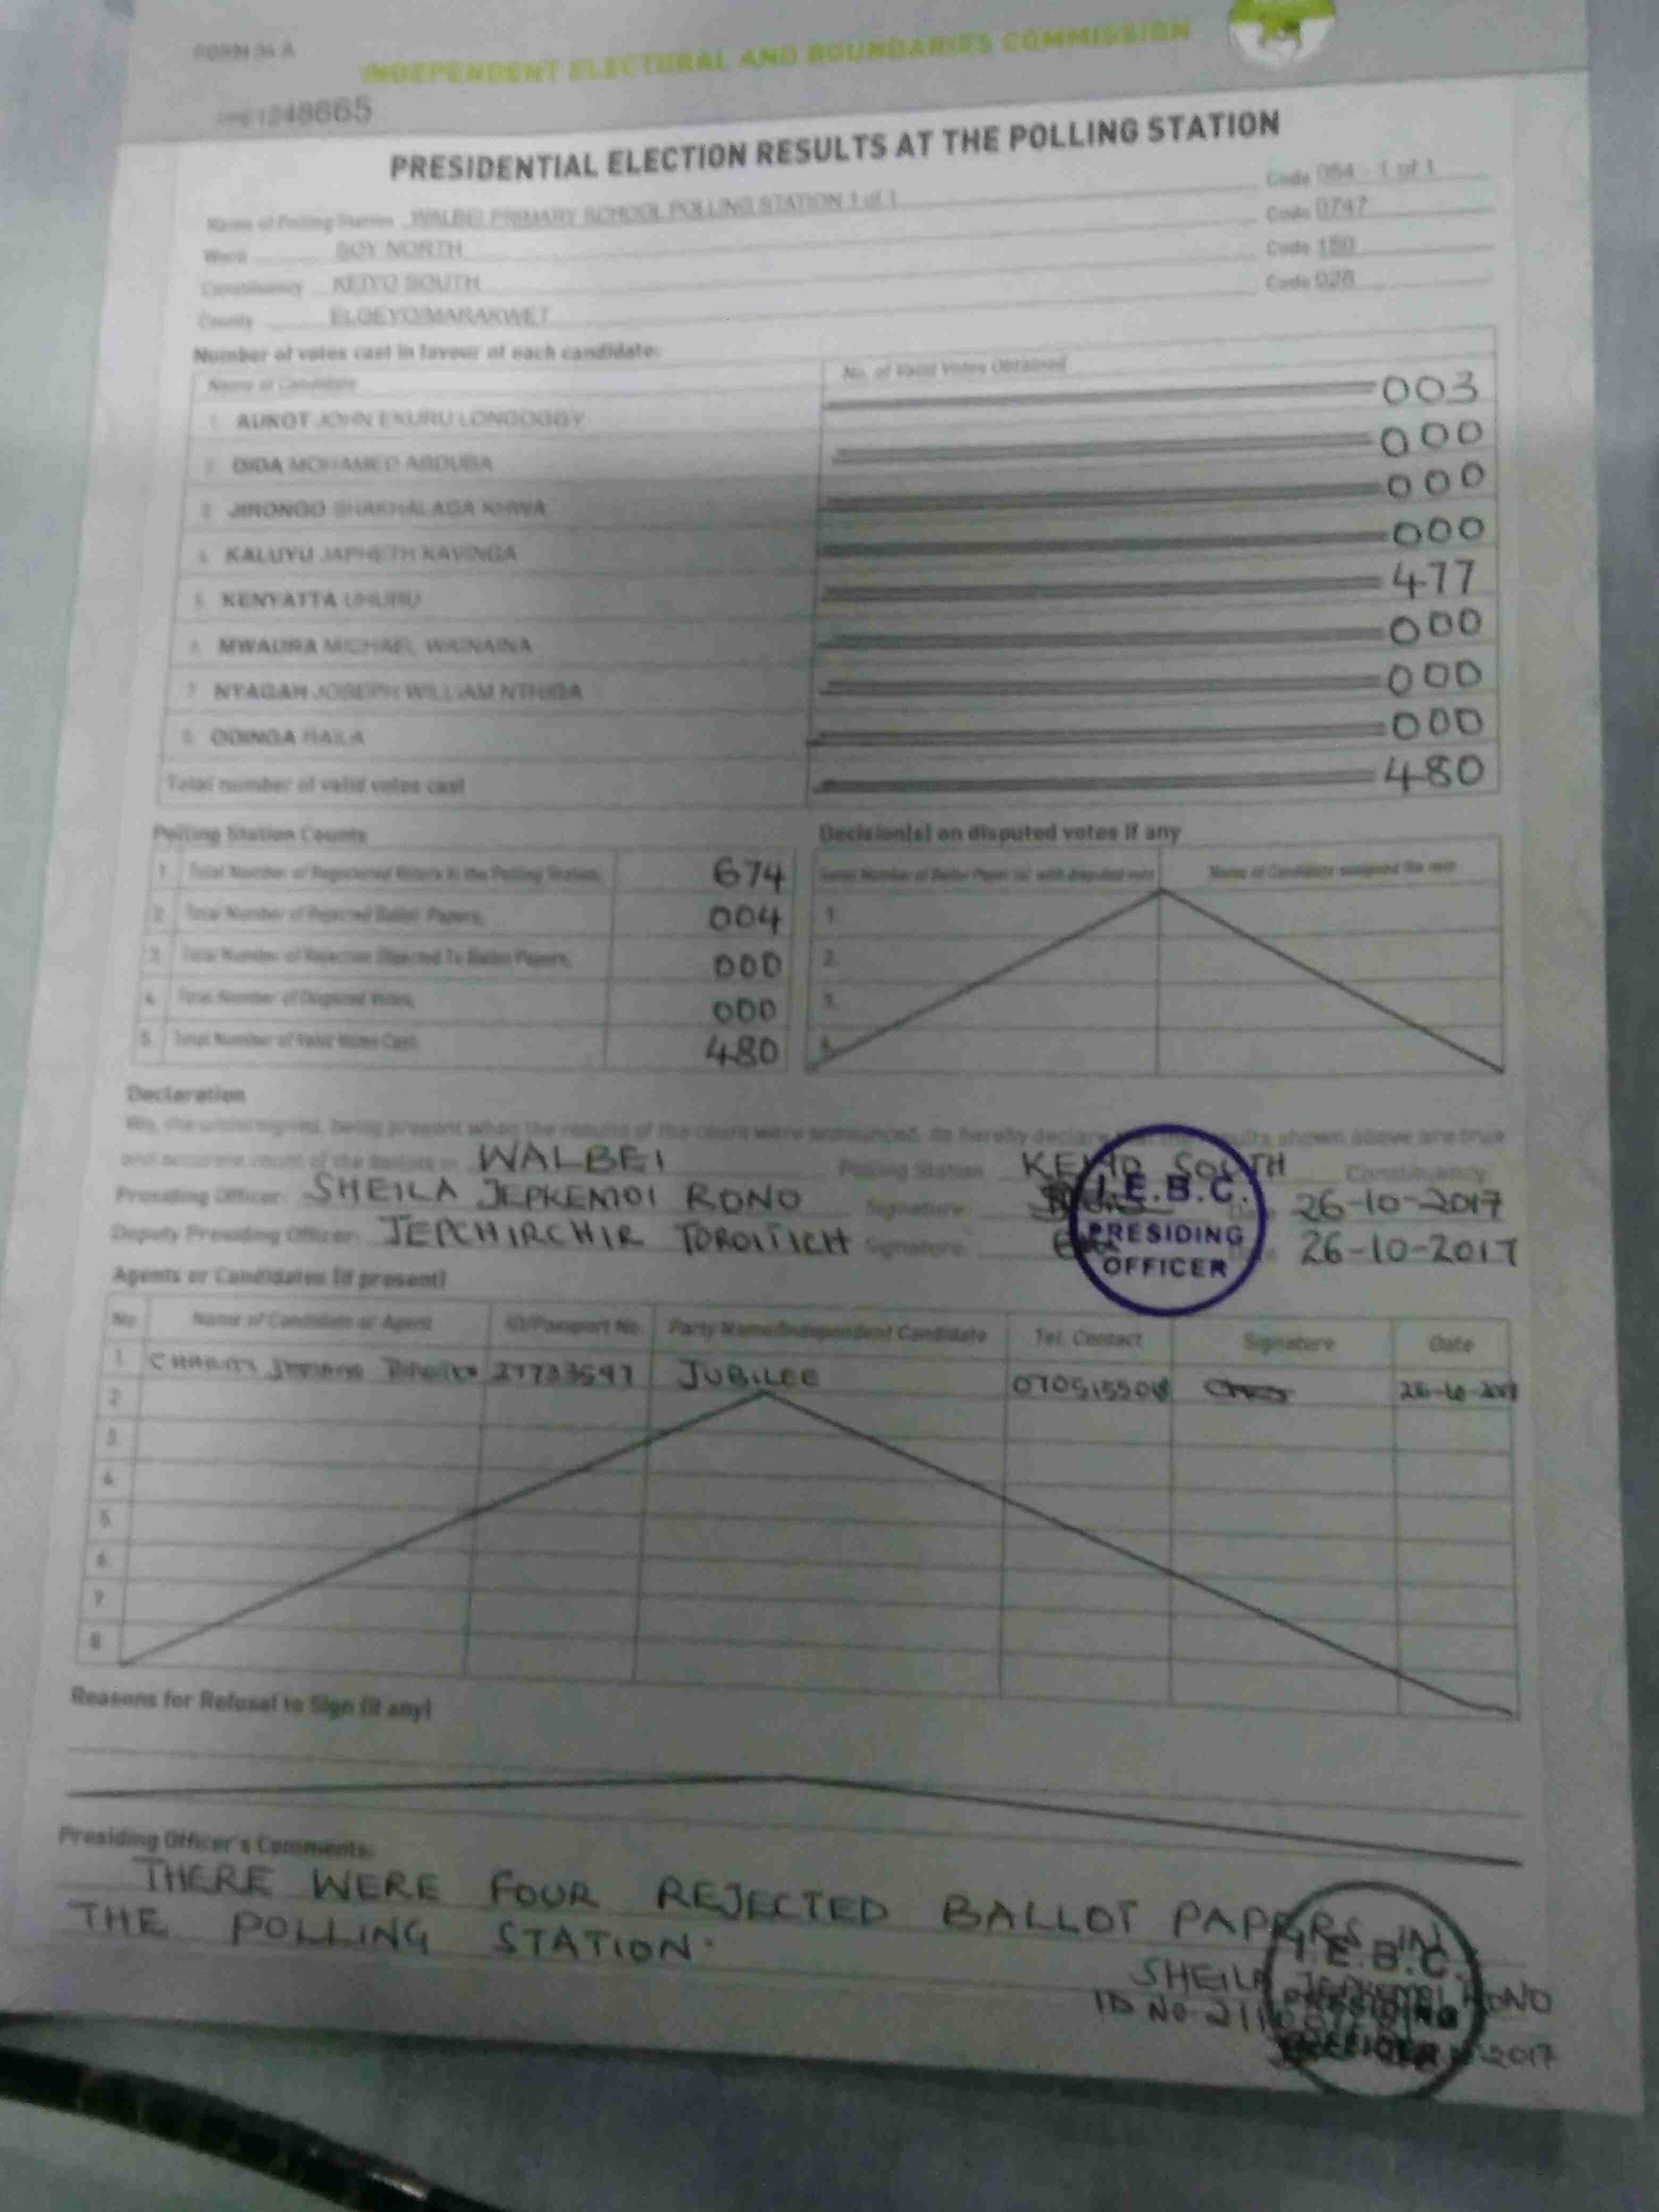 FORM 34 A
INDEPENDENT ELECTORAL AND BOUNDARIES COMMISSION
1248665
PRESIDENTIAL ELECTION RESULTS AT THE POLLING STATION
Name of Polling Station WALBEI PRIMARY SCHOOL POLLING STATION 1 of 1 Code 054 - 1 of 1
Ward SOY NORTH Code 0747
Constituency KEIYO SOUTH Code 150
County ELGEYO/MARAKWET Code 028
Number of votes cast in favour of each candidate:
Name of Candidate No. of Valid Votes Obtained
1. AUKOT JOHN EKURU LONGOGGY 003
2. DIDA MOHAMED ABDUBA 000
3. JIRONGO SHAKHALAGA KHWA 000
4. KALUYU JAPHETH KAVINGA 000
5. KENYATTA UHURU 477
6. MWAURA MICHAEL WAINAINA 000
7. NYAGAH JOSEPH WILLIAM NTHIGA 000
8. ODINGA RAILA 000
Total number of valid votes cast 480
Polling Station Counts
1. Total Number of Registered Voters in the Polling Station; 674
2. Total Number of Rejected Ballot Papers; 004
3. Total Number of Rejection Objected To Ballot Papers; 000
4. Total Number of Disputed Votes; 000
5. Total Number of Valid Votes Cast; 480
Decision(s) on disputed votes if any
Serial Number of Ballot Paper (s) with disputed vote Name of Candidate assigned the vote
1.
2.
3.
4.
Declaration
We, the undersigned, being present when the results of the count were announced, do hereby declare that the results shown above are true
and accurate count of the ballots in WALBEI Polling Station KEIYO SOUTH Constituency.
Presiding Officer: SHEILA JEPKEMOI RONO Signature: Date: 26-10-2017
Deputy Presiding Officer: JEPCHIRCHIR TOROITICH Signature: Date: 26-10-2017
I.E.B.C.
PRESIDING
OFFICER
Agents or Candidates (if present)
No. Name of Candidate or Agent ID/Passport No. Party Name/Independent Candidate Tel. Contact Signature Date
1 27733597 JUBILEE 26-10-2017
2
3.
4.
5.
6.
7.
8.
Reasons for Refusal to Sign (if any)
Presiding Officer's Comments:
THERE WERE FOUR REJECTED BALLOT PAPERS IN
THE POLLING STATION.
I.E.B.C.
SHEILA JEPKEMOI RONO
ID NO.
PRESIDING
OFFICER
2017